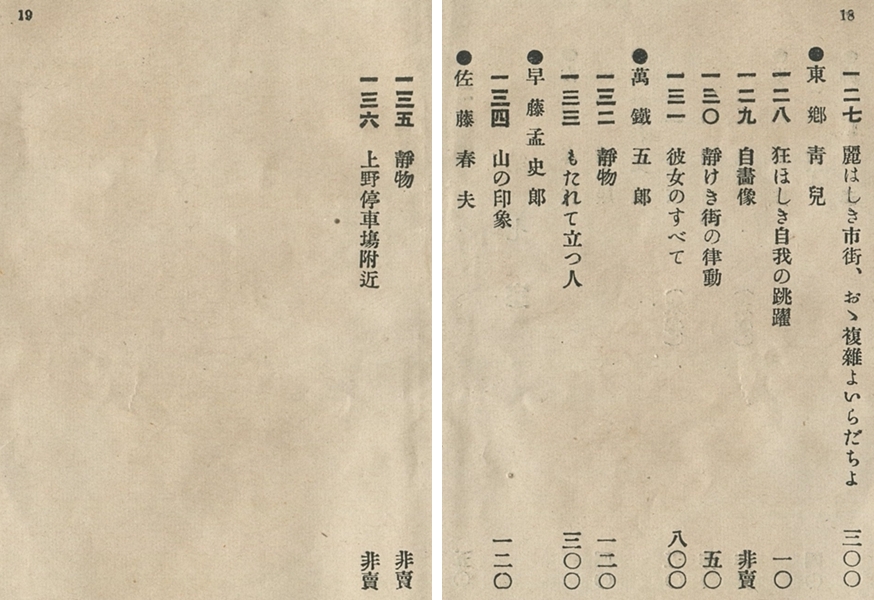 18
一二七 麗はしき市街、おゝ複雜よいらだちよ 三〇〇
●東鄕靑兒
一二八 狂ほしき自我の跳躍 一〇
一二九 自畵像 非賣
一三〇 靜けき街の律動 五〇
一三一 彼女のすべて 八〇〇
●萬鐵五郞
一三二 靜物 一二〇
一三三 もたれて立つ人 三〇〇
●早藤孟史郞
一三四 山の印象 一二〇
●佐藤春夫
19
一三五 靜物 非賣
一三六 上野停車塲附近 非賣